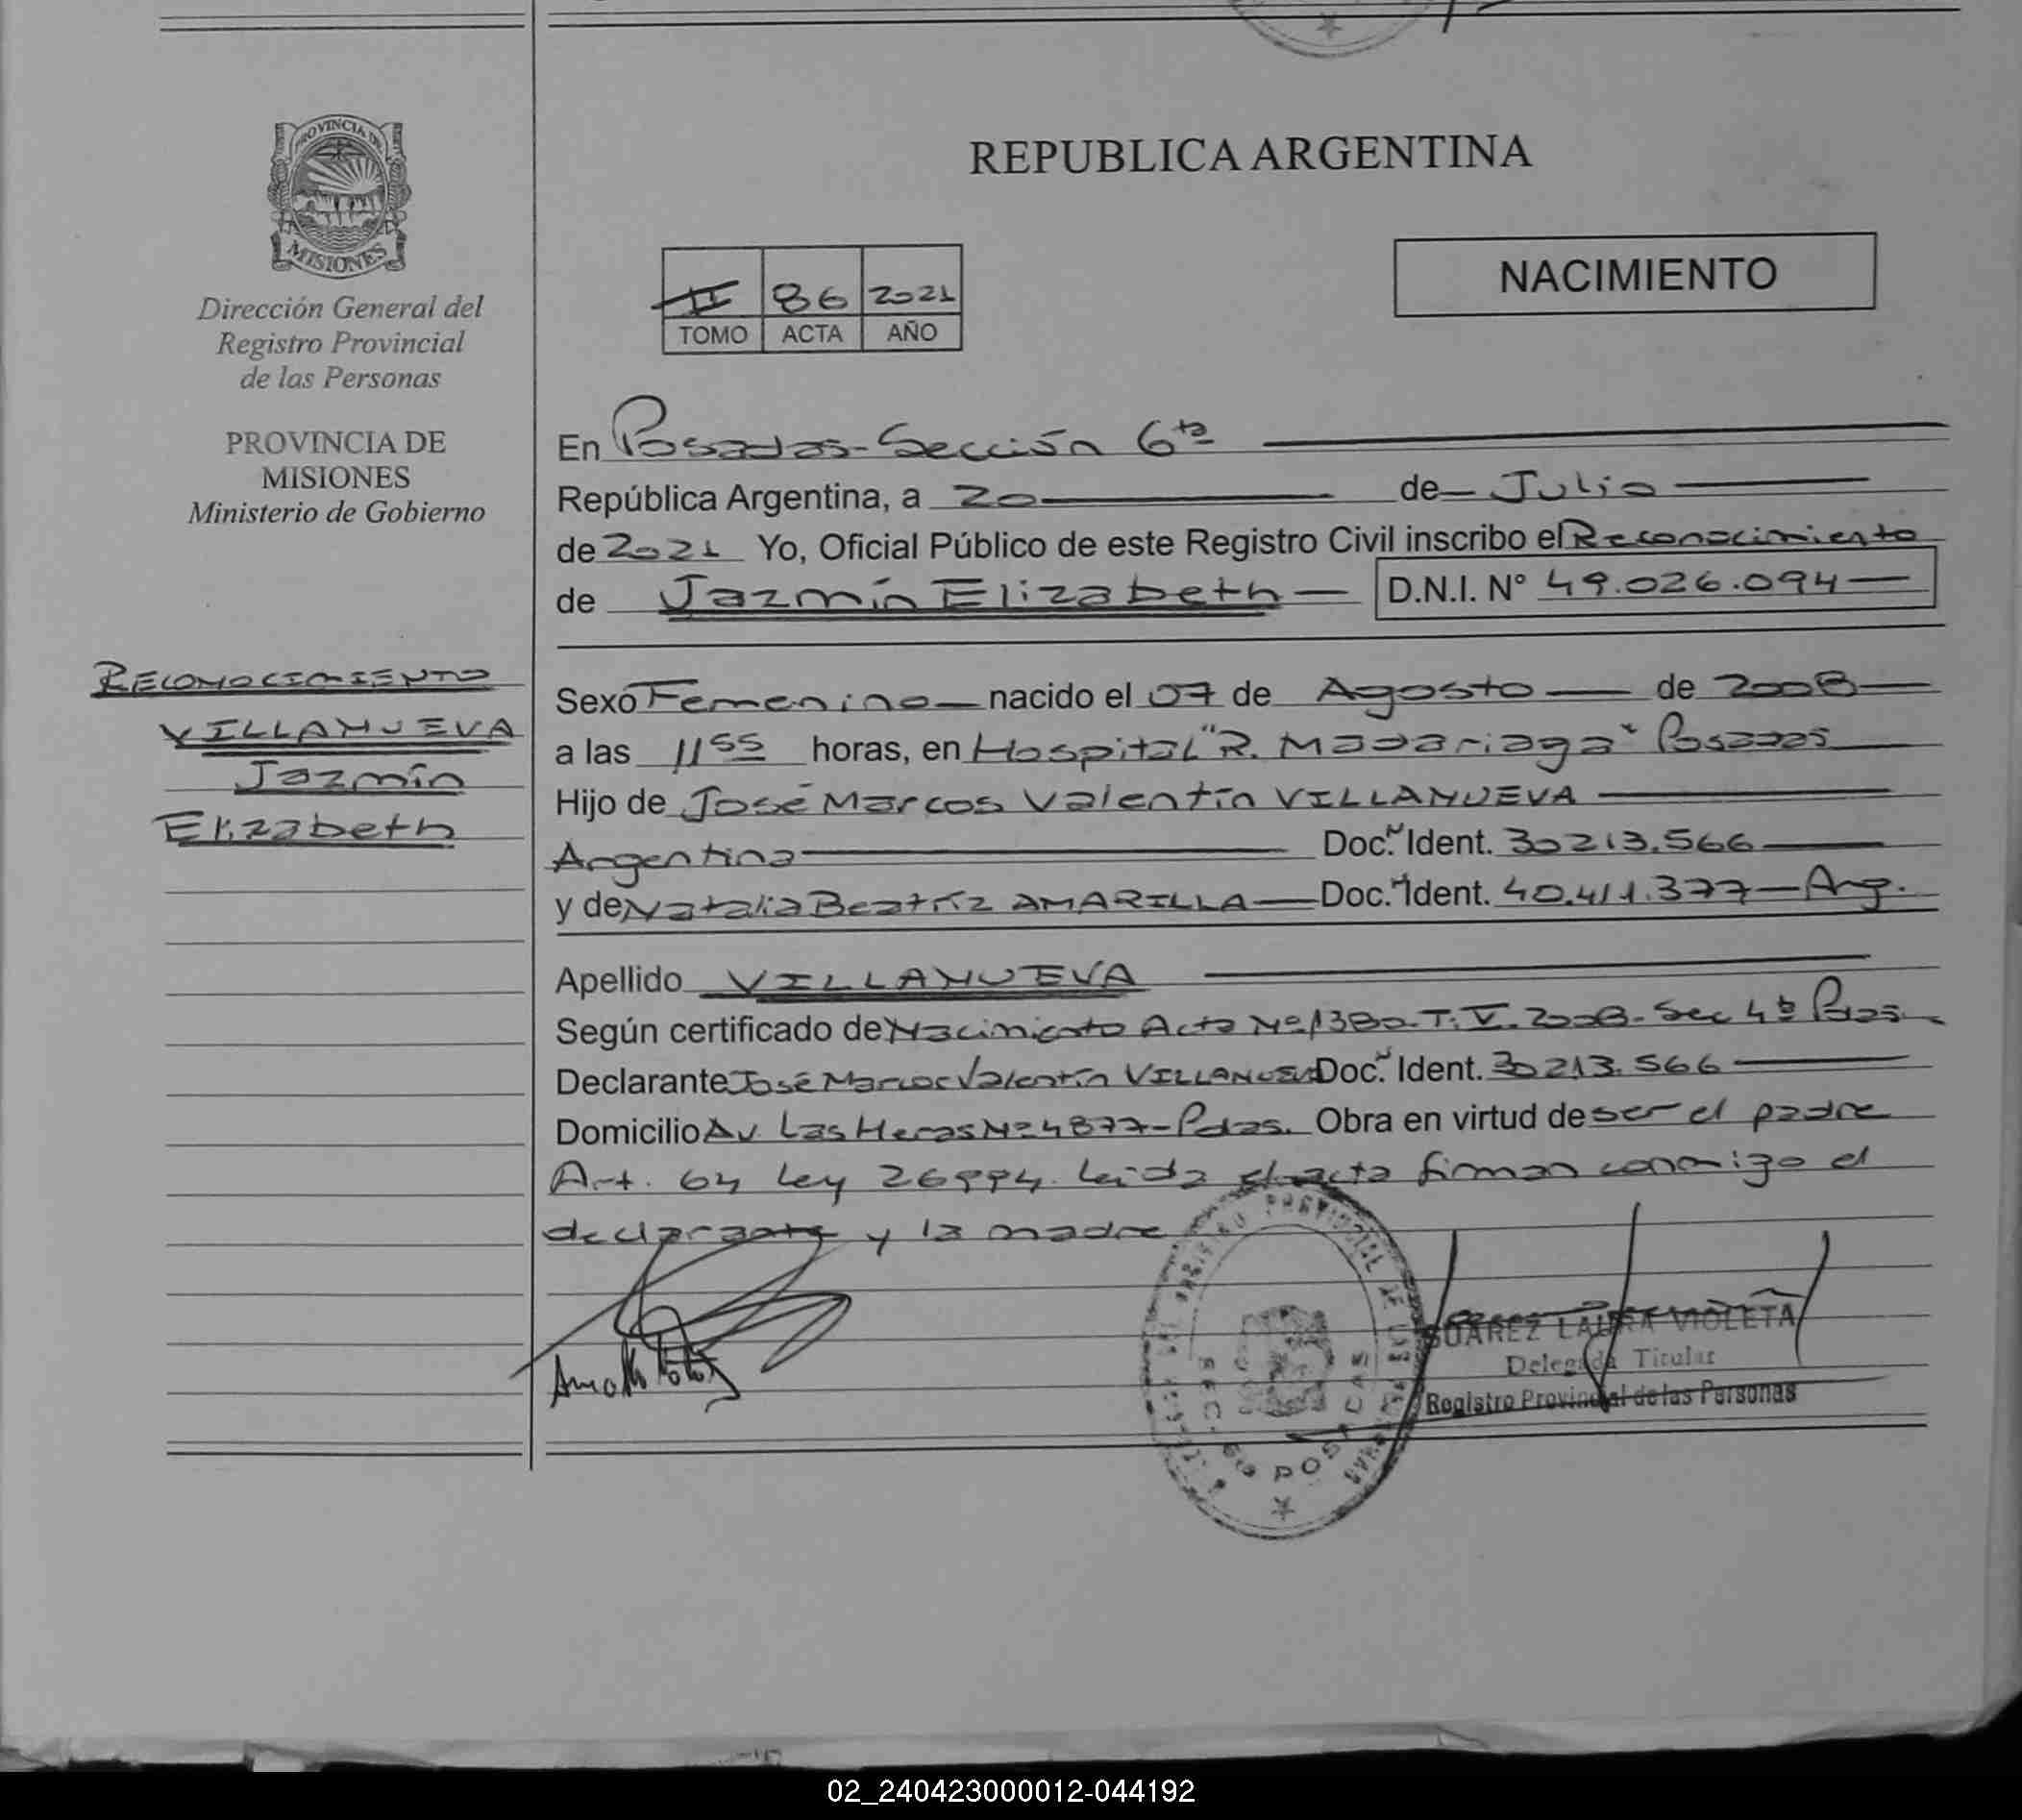 PROVINCIA DE
MISIONES
Dirección General del
Registro Provincial
de las Personas
PROVINCIA DE
MISIONES
Ministerio de Gobierno
RECONOCIMIENTO
VILLANUEVA
Jazmín
Elizabeth
REPUBLICA ARGENTINA
NACIMIENTO
II 86 2021
TOMO ACTA AÑO
En Posadas-Sección 6ta
República Argentina, a 20 de Julio
de 2021 Yo, Oficial Público de este Registro Civil inscribo el Reconocimiento
de Jazmín Elizabeth D.N.I. N° 49.026.094
Sexo Femenino nacido el 07 de Agosto de 2008
a las 11 55 horas, en Hospital "R. Madariaga" Posadas
Hijo de José Marcos Valentín VILLANUEVA
Argentina Doc. Ident. 30213.566
y de Natalia Beatríz AMARILLA Doc. Ident. 40.411.377 - Arg.
Apellido VILLANUEVA
Según certificado de Nacimiento Acta Nº 1380-T.V.2008-Sec 4ta Pdas.
Declarante José Marcos Valentín VILLANUEVA Doc. Ident. 30213.566
Domicilio Av. Las Heras Nº 4877-Pdas. Obra en virtud de ser el padre
Art. 64 Ley 26994. Leída el acta firman conmigo el
declarante y la madre
SUAREZ LAURA VIOLETA
Delegada Titular
Registro Provincial de las Personas
02_240423000012-044192